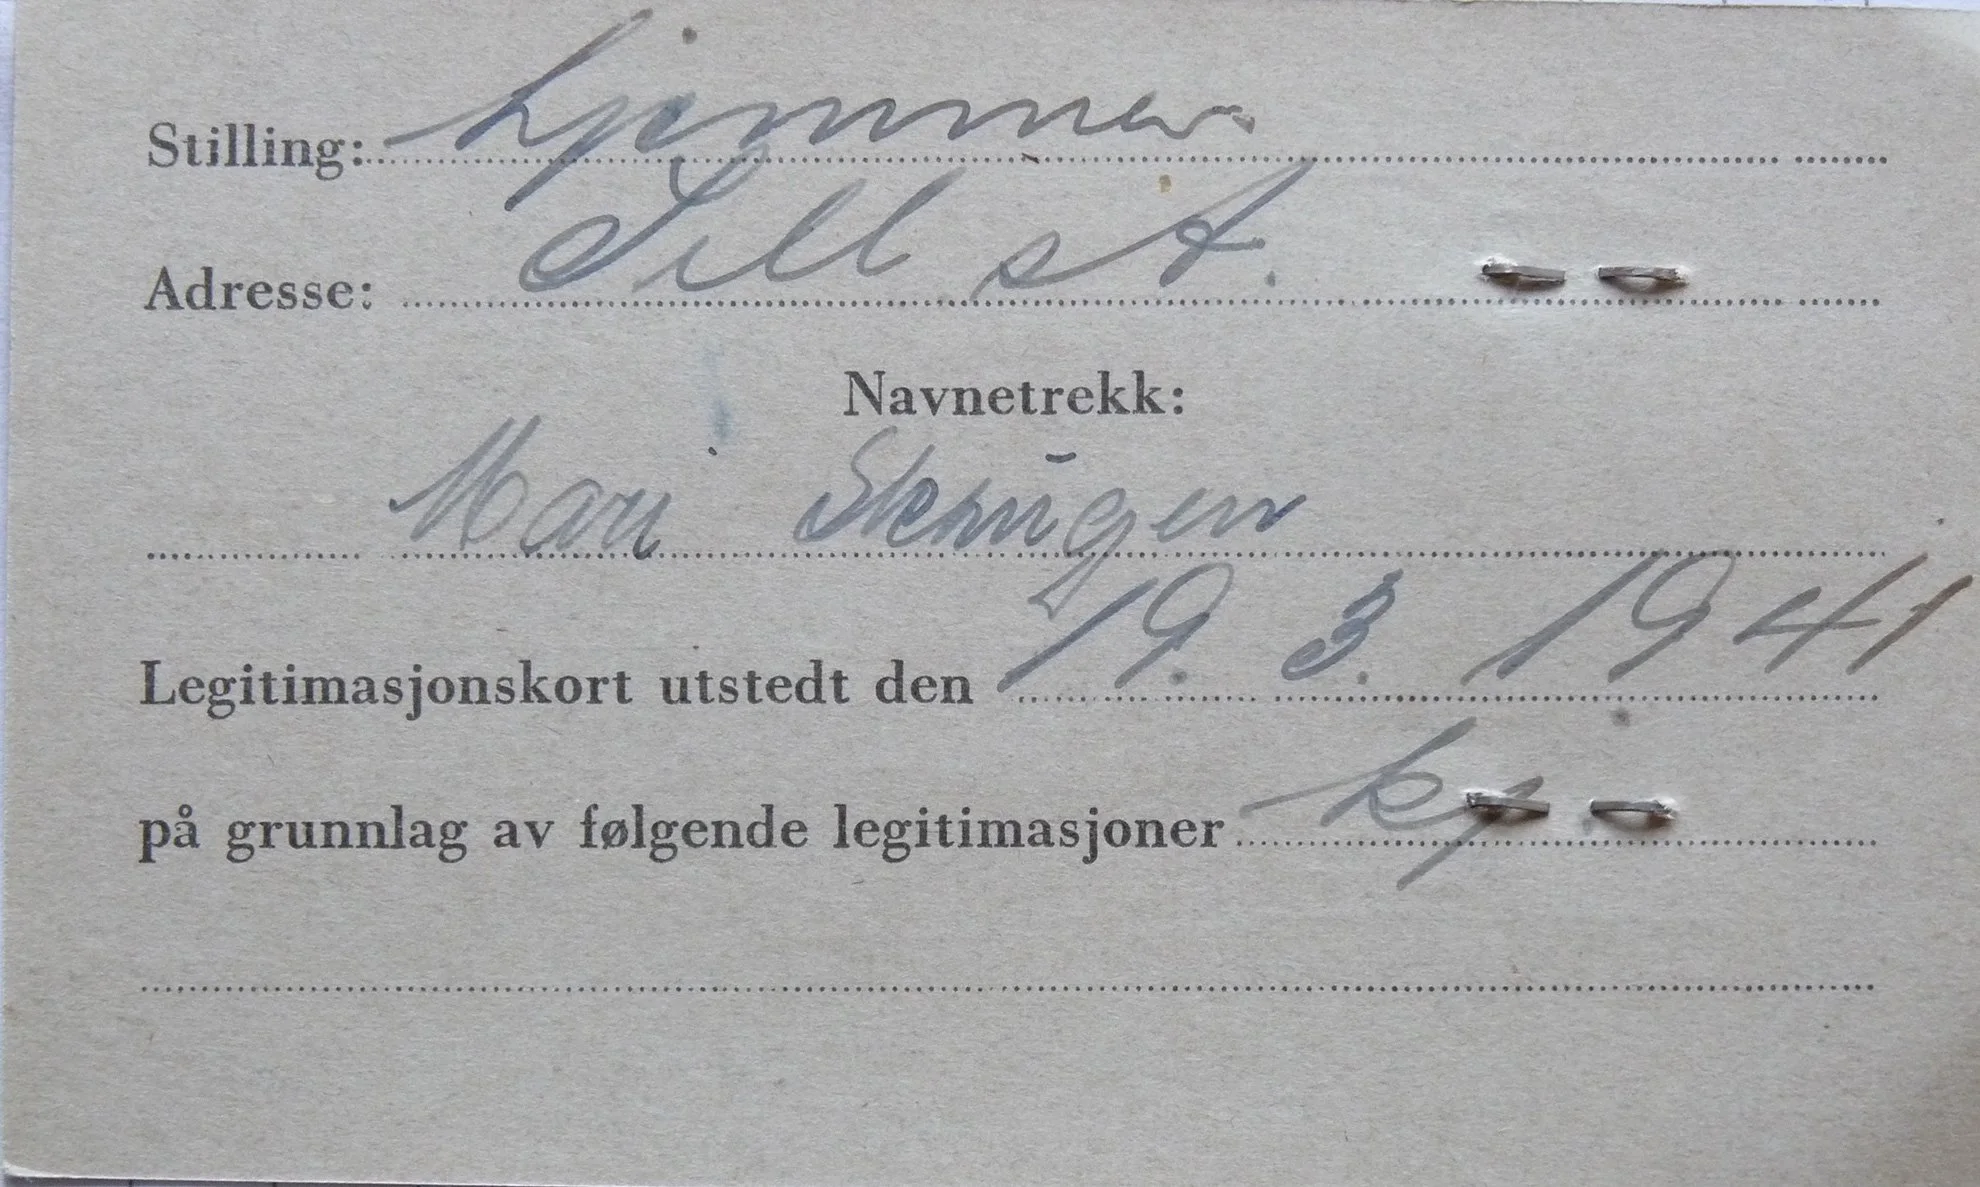 Stilling: hjemmev.
Adresse: Sell st.
Navnetrekk:
Mari Skrugen
Legitimasjonskort utstedt den 19. 3. 1941
på grunnlag av følgende legitimasjoner kj.